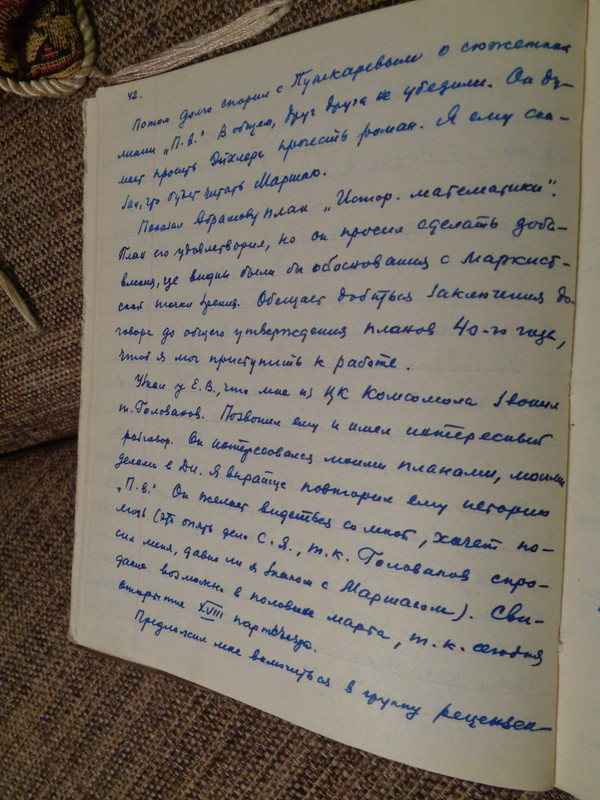 42.
Потом долго спорил с Пушкаревым о сюжетных
линиях „П.В.“ В общем, друг друга не убедили. Он ду-
мает просить Эйхлера прочесть роман. Я ему ска-
зал, что будет читать Маршак.
Показал Абрамову план „Истор. математики“.
План его удовлетворил, но он просил сделать доба-
вления, где видны были бы обоснования с маркист-
ской точки зрения. Обещает добиться заключения до-
говора до общего утверждения планов 40-го года,
чтоб я мог приступить к работе.
Узнал у Е.В., что мне из ЦК Комсомола звонил
т. Голованов. Позвонил ему и имел интересный
разговор. Он интересовался моими планами, моими
делами в Ди. Я вкратце повторил ему историю
„П.В.“ Он желает видеться со мной, хочет по-
мочь (это опять дело С.Я., т.к. Голованов спро-
сил меня, давно ли я знаком с Маршаком). Сви-
дание возможно в половине марта, т.к. сегодня
открытие XVIII партсъезда.
Предложил мне включиться в группу рецензен-